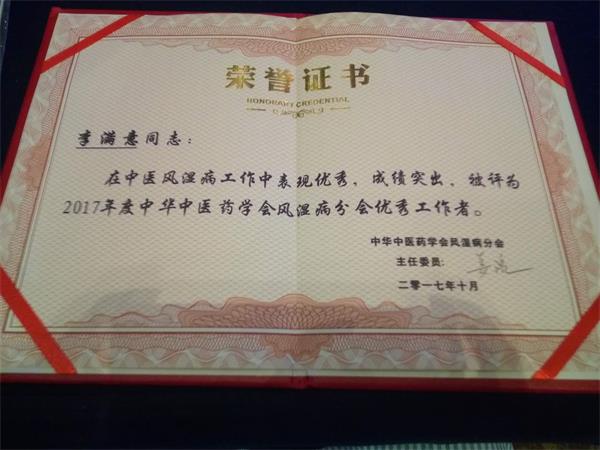 荣誉证书
HONORARY CREDENTIAL
李满意同志：
在中医风湿病工作中表现优秀，成绩突出，被评为
2017年度中华中医药学会风湿病分会优秀工作者。
中华中医药学会风湿病分会
主任委员：
二零一七年十月